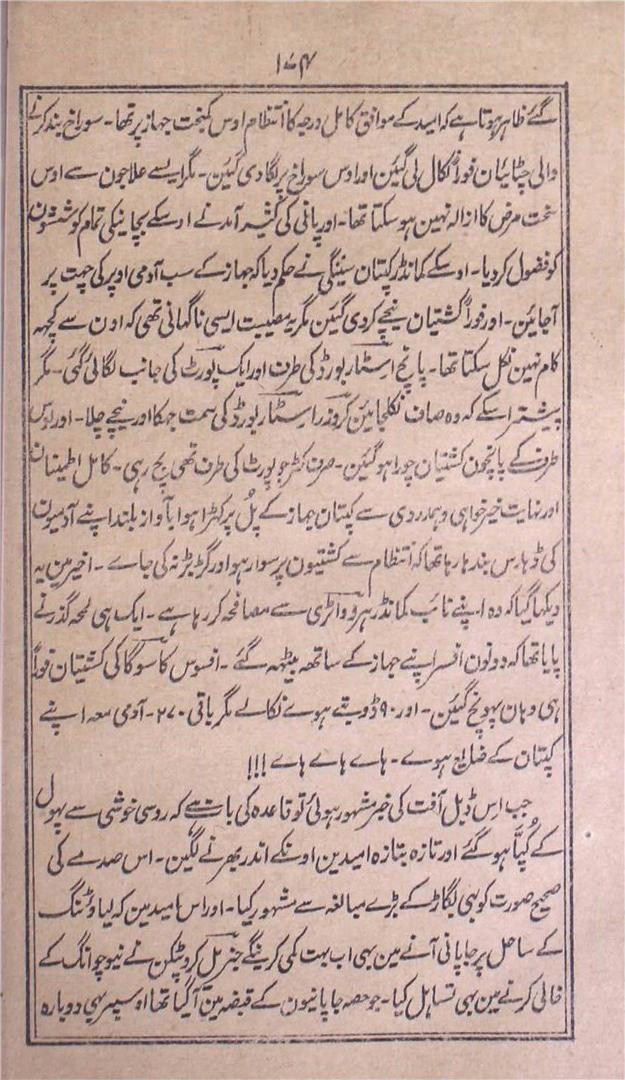 ۱۷۴
گئے ظاہر ہوتا ہے کہ امید کے موافق کامل درجہ کا انتظام اوس کمبخت جہاز پر تھا۔ سوراخ بند کرنے
والی چٹائیان فوراً نکال لی گئین اور اوس سوراخ پر لگا دی گئین۔ مگر ایسے علاجون سے اوس
سخت مرض کا ازالہ نہین ہو سکتا تھا۔ اور پانی کی کثیر آمد نے اوسکے بچانیکی تمام کوششون
کو فضول کر دیا۔ اوسکے کمانڈر کپتان سینگی نے حکم دیا کہ جہاز کے سب آدمی اوپر کی چہت پر
آجائین۔ اور فوراً کشتیان نیچے کر دی گئین مگر یہ مصیبت ایسی ناگہانی تھی کہ اون سے کچہہ
کام نہین نکل سکتا تھا۔ پانچ اسٹار بورڈ کی طرف اور ایک پورٹ کی جانب لگائی گئی۔ مگر
پیشتر اسکے کہ وہ صاف نکلجائین کروزر اسٹار بورڈ کی سمت جہکا اور نیچے چلا۔ اور اوس
طرف کے پانچون کشتیان چورا ہو گئین۔ صرف کٹر جو پورٹ کی طرف تھی بچ رہی۔ کامل اطمینان
اور نہایت خیر خواہی و ہمدردی سے کپتان جہاز کے پُل پر کہڑا ہوا بآواز بلند اپنے آدمیون
کی ڈہارس بندہا رہا تھا کہ انتظام سے کشتیون پر سوار ہو اور گڑبڑ نہ کی جاے۔ اخیر مین یہ
دیکہا گیا کہ وہ اپنے نائب کمانڈر ہرووائری سے مصافحہ کر رہا ہے۔ ایک ہی لمحہ گذرنے
پایا تھا کہ دونون افسر اپنے جہاز کے ساتھہ بیٹھہ گئے۔ افسوس کاسوگا کی کشتیان فوراً
ہی وہان پہونچ گئین۔ اور ۹۰ ڈوبتے ہوے نکالے مگر باقی ۲۷۰۔ آدمی معہ اپنے
کپتان کے ضایع ہوے۔ ہاے ہاے ہاے !!!
جب اس ڈبل آفت کی خبر مشہور ہوئی تو قاعدہ کی بات ہے کہ روسی خوشی سے پہول
کے کُپا ہو گئے اور تازہ بتازہ امیدین اونکے اندر بھرنے لگین۔ اس صدمے کی
صحیح صورت کو بہی بگاڑ کے بڑے مبالغہ سے مشہور کیا۔ اور اس امید مین کہ لیاوٹنگ
کے ساحل پر جاپانی آنے مین بہی اب بہت کمی کرینگے جنرل کروپٹکن نے نیوچوانگ کے
خالی کرنے مین بہی تساہل کیا۔ جو حصہ جاپانیون کے قبضہ مین آگیا تھا اوسپر بہی دوبارہ